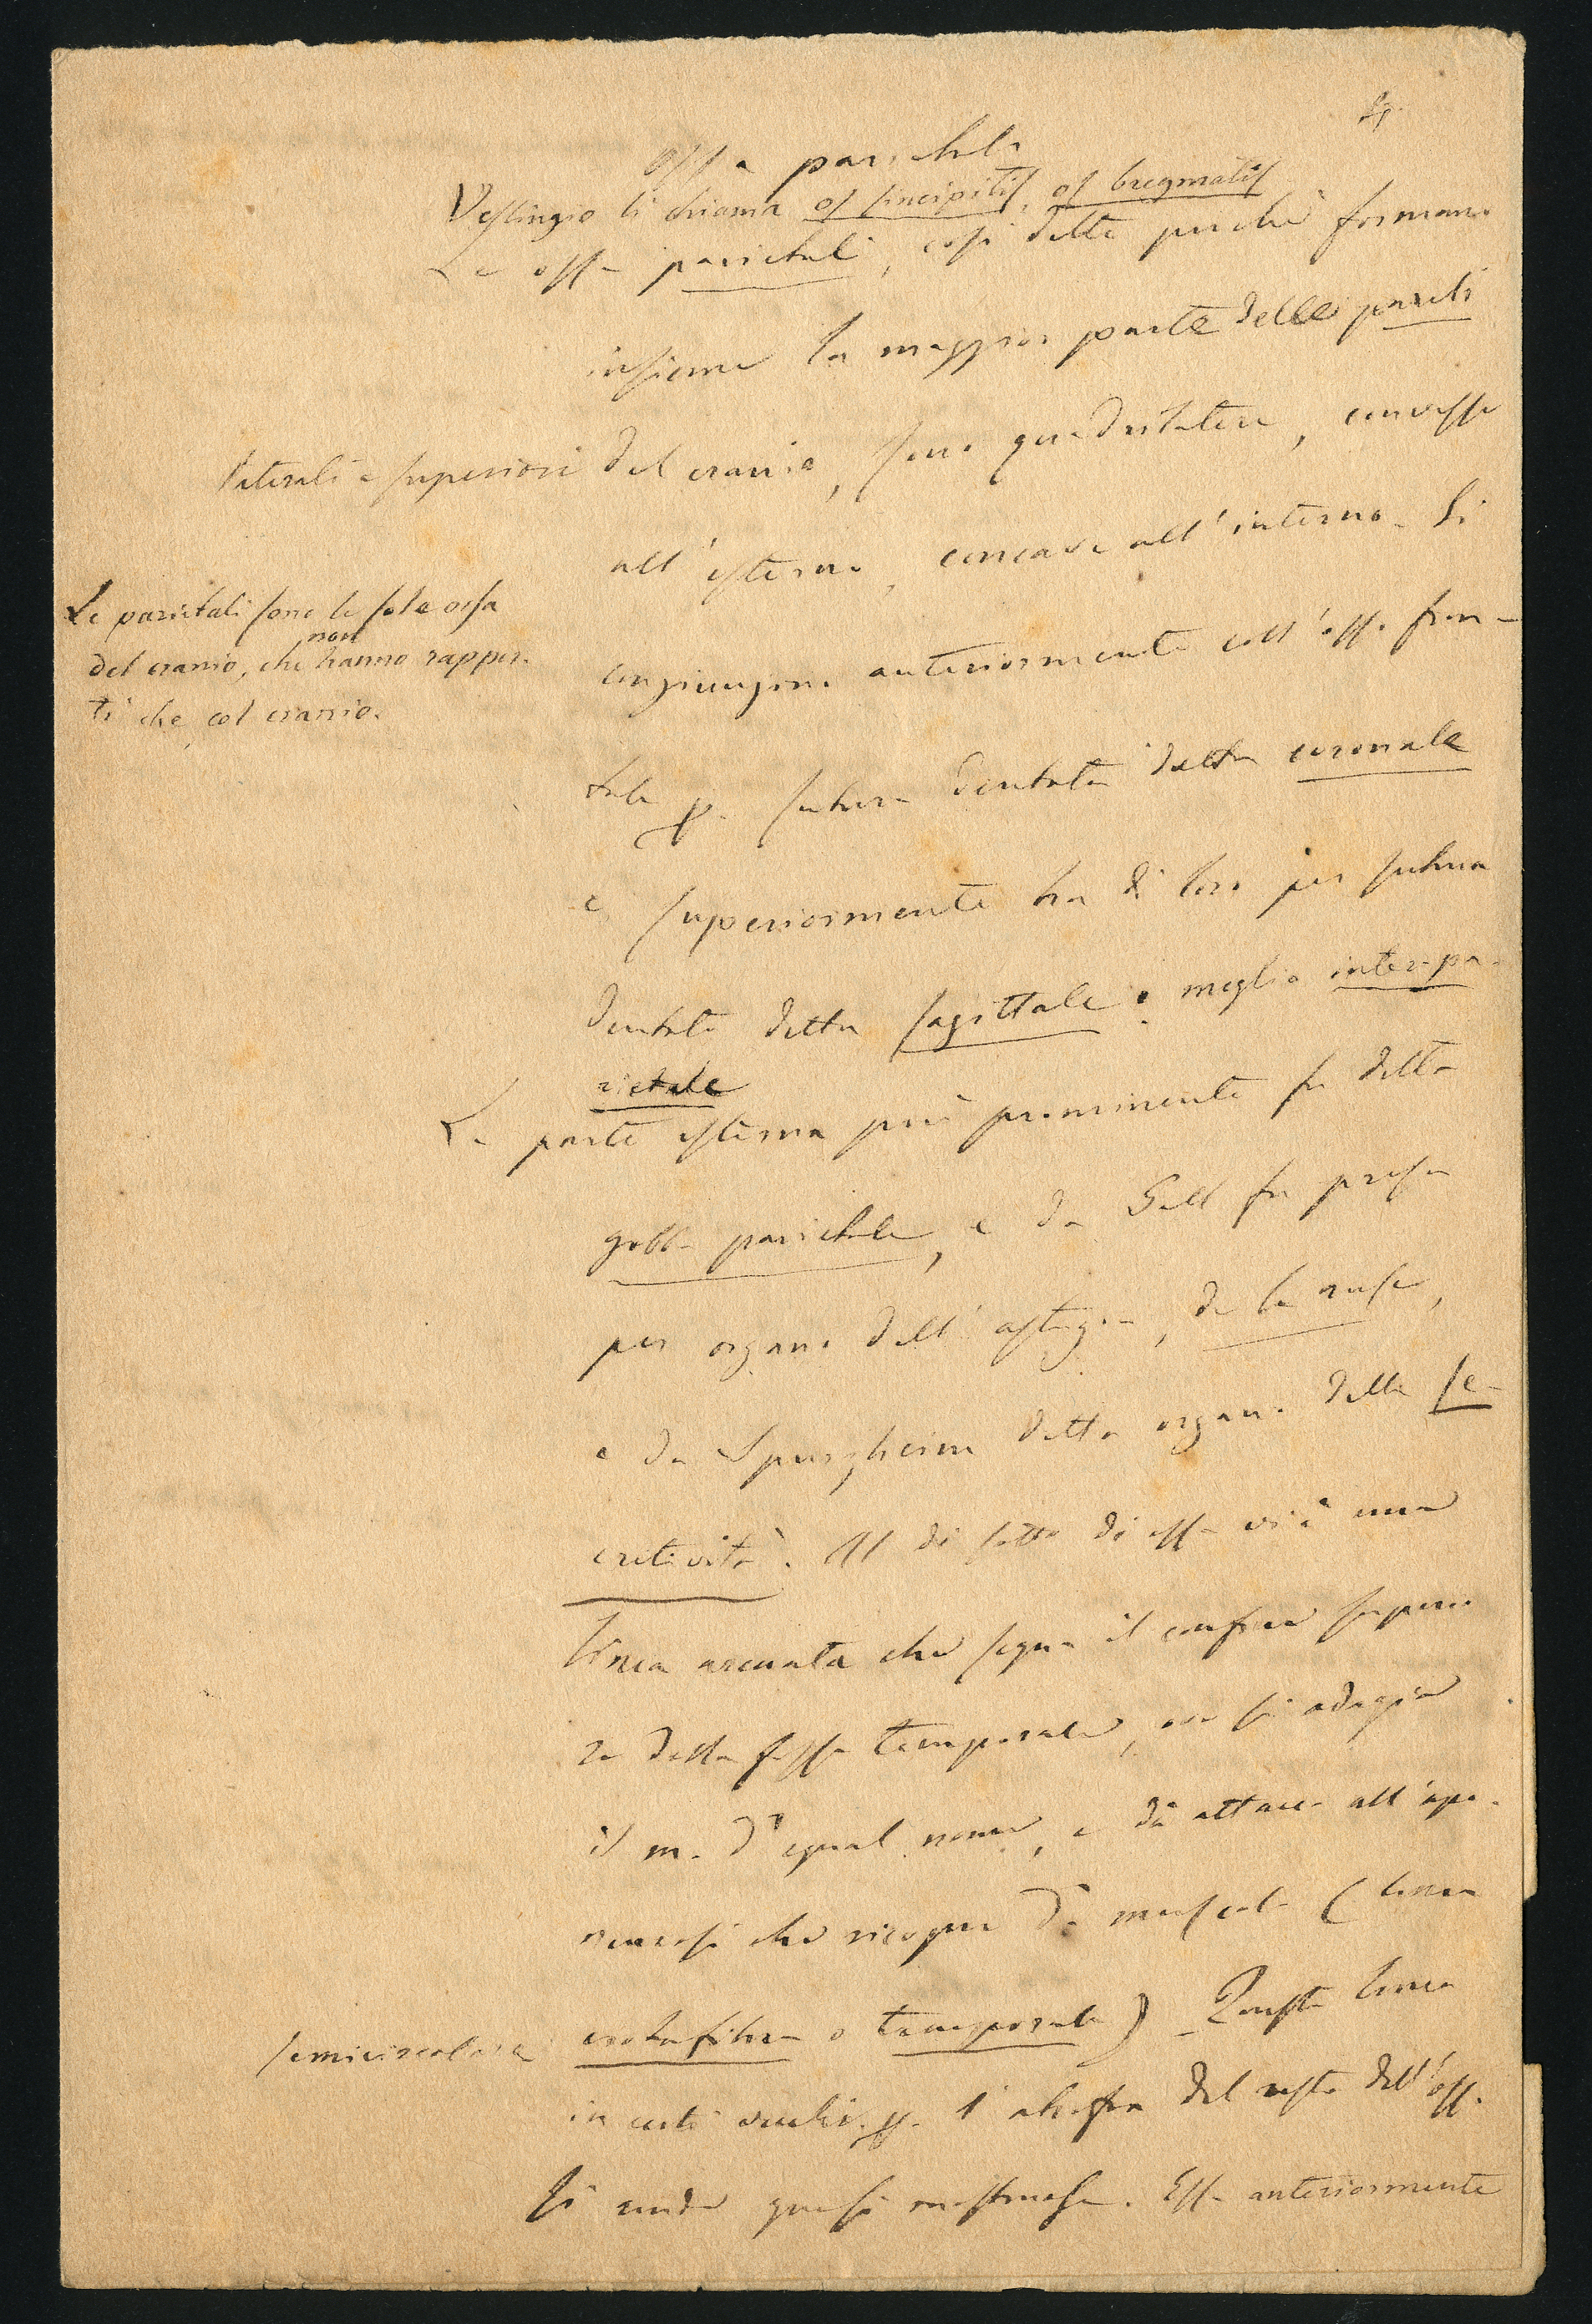 4
Ossa parietali
Veslingio li chiama os sincipitis, os bregmatis
Le ossa parietali, così dette perchè formano
insieme la maggior parte delle pareti
laterali e superiori del cranio, sono quadrilatere, convesse
all'esterno, concave all'interno. Si
Le parietali sono le sole ossa
del cranio, che non hanno rappor-
ti che col cranio.
congiungono anteriormente coll'osso fron-
tale p. sutura dentata detta coronale
e superiormente tra di loro per sutura
dentata detta sagittale o meglio inter-pa-
rietale
La parte esterna più prominente fu detta
gobba parietale, e da Gall fu presa
per organo dell'astuzia, de la ruse,
e da Spurzheim detto organo della se-
cretività. Al di sotto di essa vi è una
linea arcuata che segna il confine superio
re della fossa temporale, ove si adagia
il m. d'egual nome, e dà attacco all'apo-
neurosi che ricopre dº muscolo (linea
semicircolare crotafitica o temporale) - Questa linea
in certi p. l' del resto dell'osso
si rende quasi mostruosa. Essa anteriormente